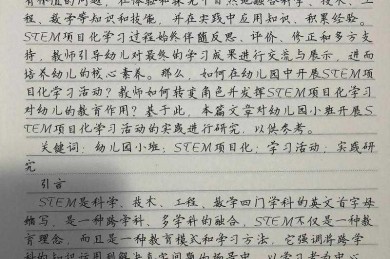 程、数学等知识和技能，并在实践中应用知识、积累经验。
STEM项目化学习过程始终伴随反思、评价、修正和多方支
持，教师引导幼儿对最终的学习成果进行交流与展示，进而
培养幼儿的核心素养。那么，如何在幼儿园中开展STEM项
目化学习活动？教师如何转变角色并发挥STEM项目化学习
对幼儿的教育作用？基于此，本篇文章对幼儿园小班开展S
TEM项目化学习活动的实践进行研究，以供参考。
关键词：幼儿园小班；STEM项目化；学习活动；实践研
究
引言
STEM是科学、技术、工程、数学四门学科的英文首字母
缩写，是一种跨学科、多学科的融合，STEM不仅是一种教
育理念，而且是一种教育模式和学习方法，它强调将跨学
科的知识运用到解决真实问题的场景中，以学习者为中心